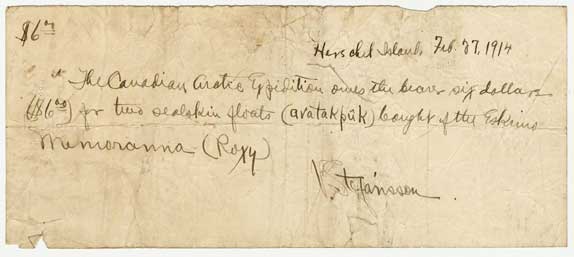 $6 00
Herschel Island, Feb. 27, 1914
The Canadian Arctic Expedition owes the bearer six dollars
($6 00) for two sealskin floats (avatakpük) bought of the Eskimo
Memoranna (Roxy)
V. Stefansson